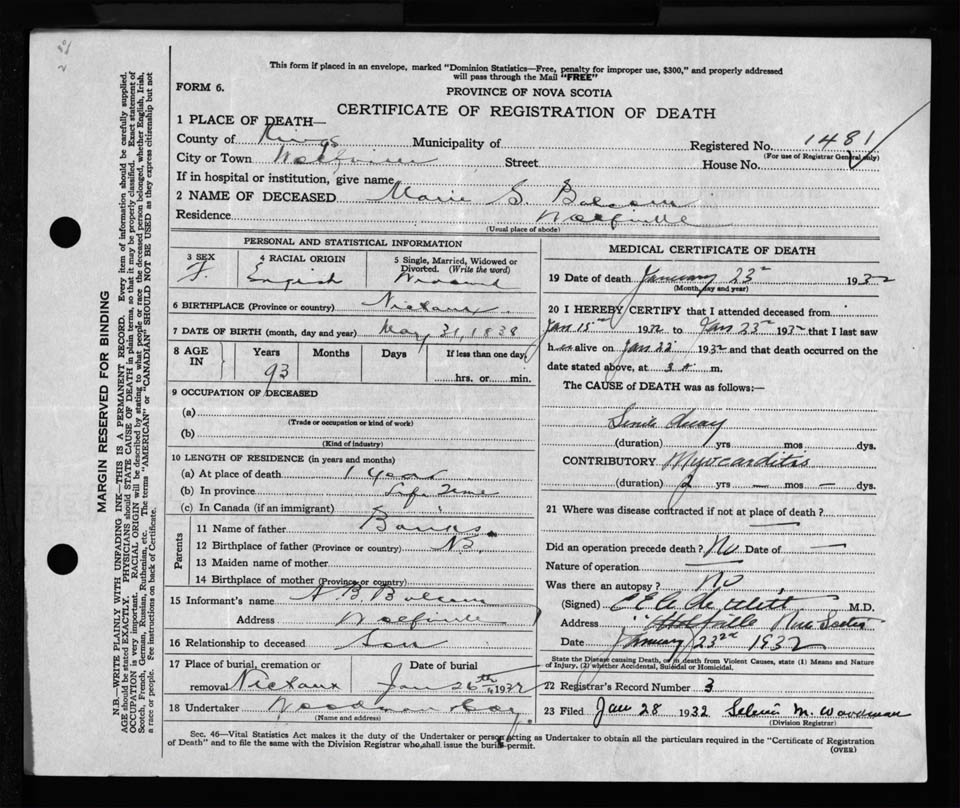 This form if placed in an envelope, marked "Dominion Statistics—Free, penalty for improper use, $300," and properly addressed
will pass through the Mail "FREE"
FORM 6.
PROVINCE OF NOVA SCOTIA
CERTIFICATE OF REGISTRATION OF DEATH
1 PLACE OF DEATH—
County of Kings Municipality of Registered No. 1481
(For use of Registrar General only)
City or Town Wolfville Street House No.
If in hospital or institution, give name
2 NAME OF DECEASED Marie S. Balcom
Residence Wolfville
(Usual place of abode)
PERSONAL AND STATISTICAL INFORMATION
3 SEX 4 RACIAL ORIGIN 5 Single, Married, Widowed or Divorced. (Write the word)
F. English
6 BIRTHPLACE (Province or country) Nictaux
7 DATE OF BIRTH (month, day and year) May 31, 1838
8 AGE IN Years Months Days If less than one day
93 hrs. or min.
9 OCCUPATION OF DECEASED
(a)
(Trade or occupation or kind of work)
(b)
(Kind of industry)
10 LENGTH OF RESIDENCE (in years and months)
(a) At place of death 1 year
(b) In province Life Time
(c) In Canada (if an immigrant)
Parents
11 Name of father Banks
12 Birthplace of father (Province or country) N.B.
13 Maiden name of mother
14 Birthplace of mother (Province or country)
15 Informant's name A. B. Balcom
Address Wolfville
16 Relationship to deceased Son
17 Place of burial, cremation or removal Nictaux Date of burial Jan 26th 1932
18 Undertaker Woodman
(Name and address)
MEDICAL CERTIFICATE OF DEATH
19 Date of death January 23rd 1932
(Month, day and year)
20 I HEREBY CERTIFY that I attended deceased from
Jan 15 1932 to Jan 23rd 1932 that I last saw
her alive on Jan 22 1932 and that death occurred on the
date stated above, at 3 a m.
The CAUSE of DEATH was as follows:—
Senile decay
(duration) yrs mos dys.
CONTRIBUTORY Myocarditis
(duration) 2 yrs — mos — dys.
21 Where was disease contracted if not at place of death?
—
Did an operation precede death? No Date of —
Nature of operation —
Was there an autopsy? No
(Signed) DeWitt M.D.
Address Wolfville Nova Scotia
Date January 23rd 1932
State the Disease causing Death, or in death from Violent Causes, state (1) Means and Nature
of Injury, (2) whether Accidental, Suicidal or Homicidal.
22 Registrar's Record Number 3
23 Filed Jan 28 1932 M. Woodman
(Division Registrar)
Sec. 46—Vital Statistics Act makes it the duty of the Undertaker or person acting as Undertaker to obtain all the particulars required in the "Certificate of Registration
of Death" and to file the same with the Division Registrar who shall issue the burial permit.
(OVER)
MARGIN RESERVED FOR BINDING
N.B.—WRITE PLAINLY WITH UNFADING INK—THIS IS A PERMANENT RECORD. Every item of information should be carefully supplied.
AGE should be stated EXACTLY. PHYSICIANS should STATE CAUSE OF DEATH in plain terms, so that it may be properly classified. Exact statement of
OCCUPATION is very important. RACIAL ORIGIN will be described by stating to what people or race the deceased person belonged, whether English, Irish,
Scotch, French, German, Russian, Ruthenian, etc. The terms "AMERICAN" or "CANADIAN" SHOULD NOT BE USED as they express citizenship but not
a race or people. See instructions on back of Certificate.